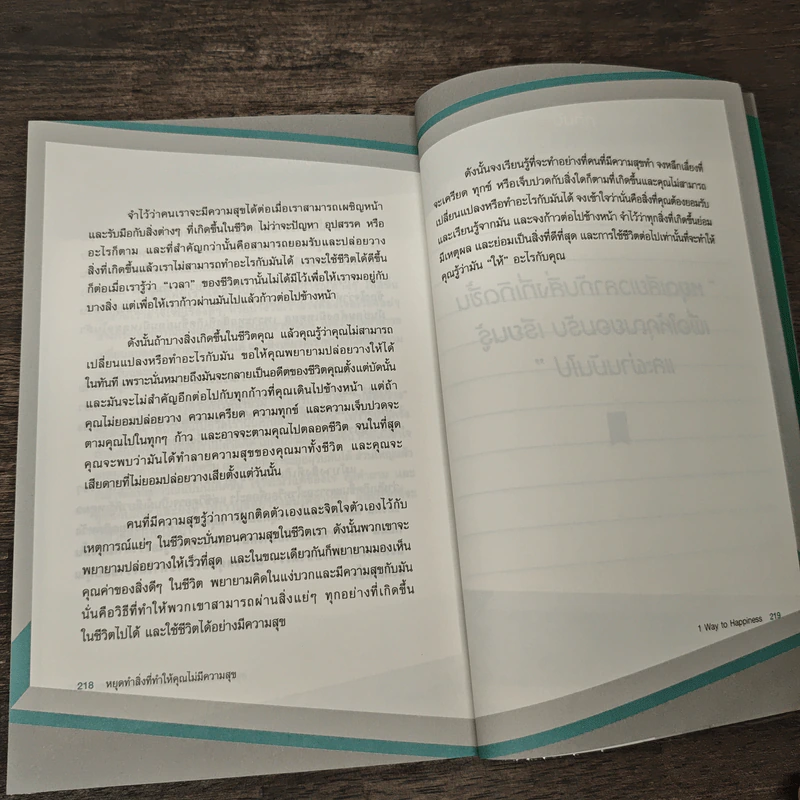 จำไว้ว่าคนเราจะมีความสุขได้ต่อเมื่อเราสามารถเผชิญหน้า
และรับมือกับสิ่งต่างๆ ที่เกิดขึ้นในชีวิต ไม่ว่าจะปัญหา อุปสรรค หรือ
อะไรก็ตาม และที่สำคัญกว่านั้นคือสามารถยอมรับและปล่อยวาง
สิ่งที่เกิดขึ้นแล้วเราไม่สามารถทำอะไรกับมันได้ เราจะใช้ชีวิตได้ดีขึ้น
ก็ต่อเมื่อเรารู้ว่า "เวลา" ของชีวิตเรานั้นไม่ได้มีไว้เพื่อให้เราจมอยู่กับ
บางสิ่ง แต่เพื่อให้เราก้าวผ่านมันไปแล้วก้าวต่อไปข้างหน้า
ดังนั้นถ้าบางสิ่งเกิดขึ้นในชีวิตคุณ แล้วคุณรู้ว่าคุณไม่สามารถ
เปลี่ยนแปลงหรือทำอะไรกับมัน ขอให้คุณพยายามปล่อยวางให้ได้
ในทันที เพราะนั่นหมายถึงมันจะกลายเป็นอดีตของชีวิตคุณตั้งแต่บัดนั้น
และมันจะไม่สำคัญอีกต่อไปกับทุกก้าวที่คุณเดินไปข้างหน้า แต่ถ้า
คุณไม่ยอมปล่อยวาง ความเครียด ความทุกข์ และความเจ็บปวดจะ
ตามคุณไปในทุกๆ ก้าว และอาจจะตามคุณไปตลอดชีวิต จนในที่สุด
คุณจะพบว่ามันได้ทำลายความสุขของคุณมาทั้งชีวิต และคุณจะ
เสียดายที่ไม่ยอมปล่อยวางเสียตั้งแต่วันนั้น
คนที่มีความสุขรู้ว่าการผูกติดตัวเองและจิตใจตัวเองไว้กับ
เหตุการณ์แย่ๆ ในชีวิตจะบั่นทอนความสุขในชีวิตเรา ดังนั้นพวกเขาจะ
พยายามปล่อยวางให้เร็วที่สุด และในขณะเดียวกันก็พยายามมองเห็น
คุณค่าของสิ่งดีๆ ในชีวิต พยายามคิดในแง่บวกและมีความสุขกับมัน
นั่นคือวิธีที่ทำให้พวกเขาสามารถผ่านสิ่งแย่ๆ ทุกอย่างที่เกิดขึ้น
ในชีวิตไปได้ และใช้ชีวิตได้อย่างมีความสุข
218 หยุดทำสิ่งที่ทำให้คุณไม่มีความสุข
ดังนั้นจงเรียนรู้ที่จะทำอย่างที่คนที่มีความสุขทำ จงหลีกเลี่ยงที่
จะเครียด ทุกข์ หรือเจ็บปวดกับสิ่งใดก็ตามที่เกิดขึ้นและคุณไม่สามารถ
เปลี่ยนแปลงหรือทำอะไรกับมันได้ จงเข้าใจว่านั่นคือสิ่งที่คุณต้องยอมรับ
และเรียนรู้จากมัน และจงก้าวต่อไปข้างหน้า จำไว้ว่าทุกสิ่งที่เกิดขึ้นย่อม
มีเหตุผล และย่อมเป็นสิ่งที่ดีที่สุด และการใช้ชีวิตต่อไปเท่านั้นที่จะทำให้
คุณรู้ว่ามัน "ให้" อะไรกับคุณ
1 Way to Happiness 219